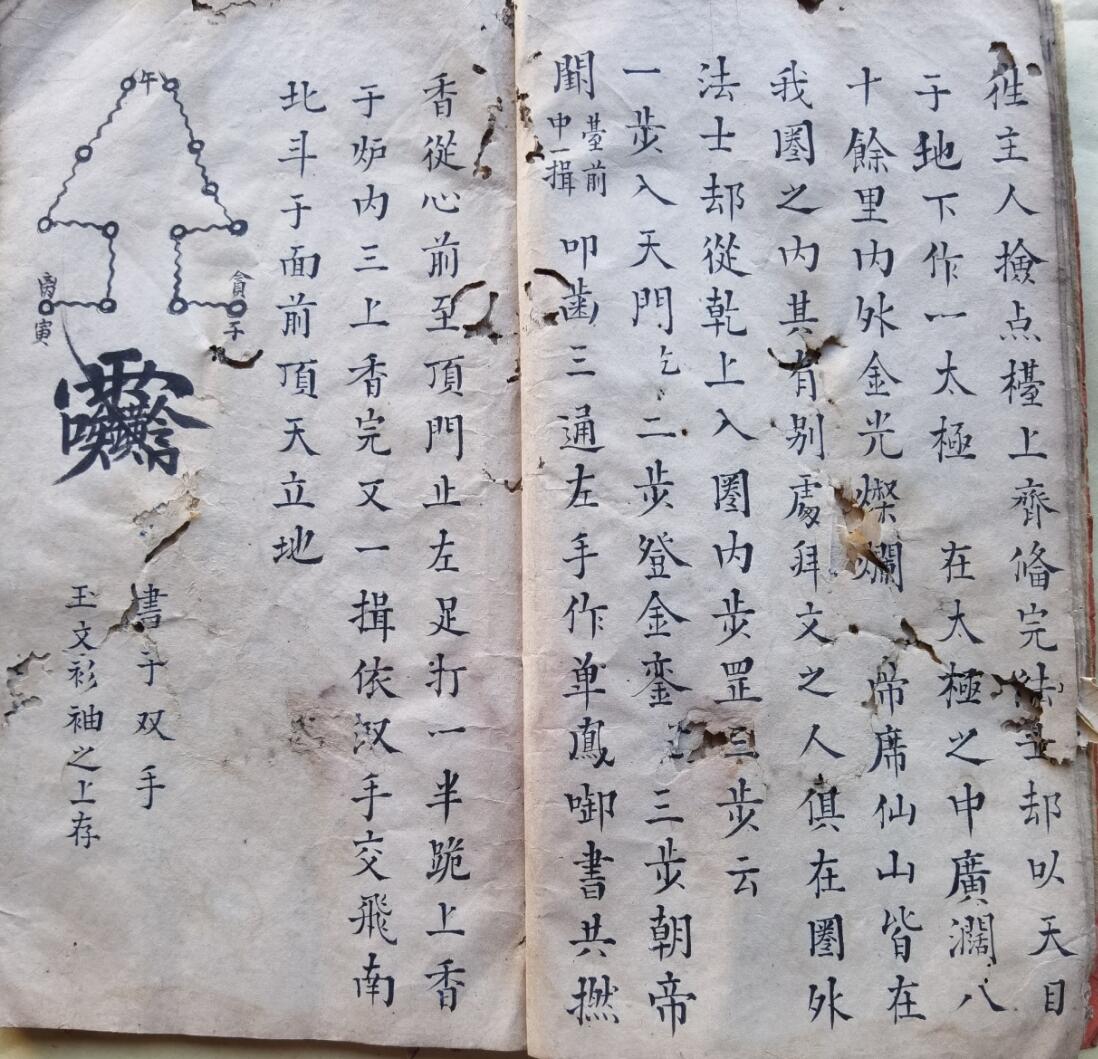 往主人撿点檯上齊俻完法士却以天目
于地下作一太極 在太極之中廣濶八
十餘里内外金光燦爛 帝席仙山皆在
我圏之内其有别處拜文之人俱在圏外
法士却從乾上入圏内步罡三步云
一步入天門乞 二步登金銮 三步朝帝
闕
䑓前
中一揖
叩歯三通左手作单鳳啣書共撚
香從心前至頂門止左足打一半跪上香
于炉内三上香完又一揖依汊手交飛南
北斗于面前頂天立地
午
貪
子
寅
書于双手
玉文衫袖之上存